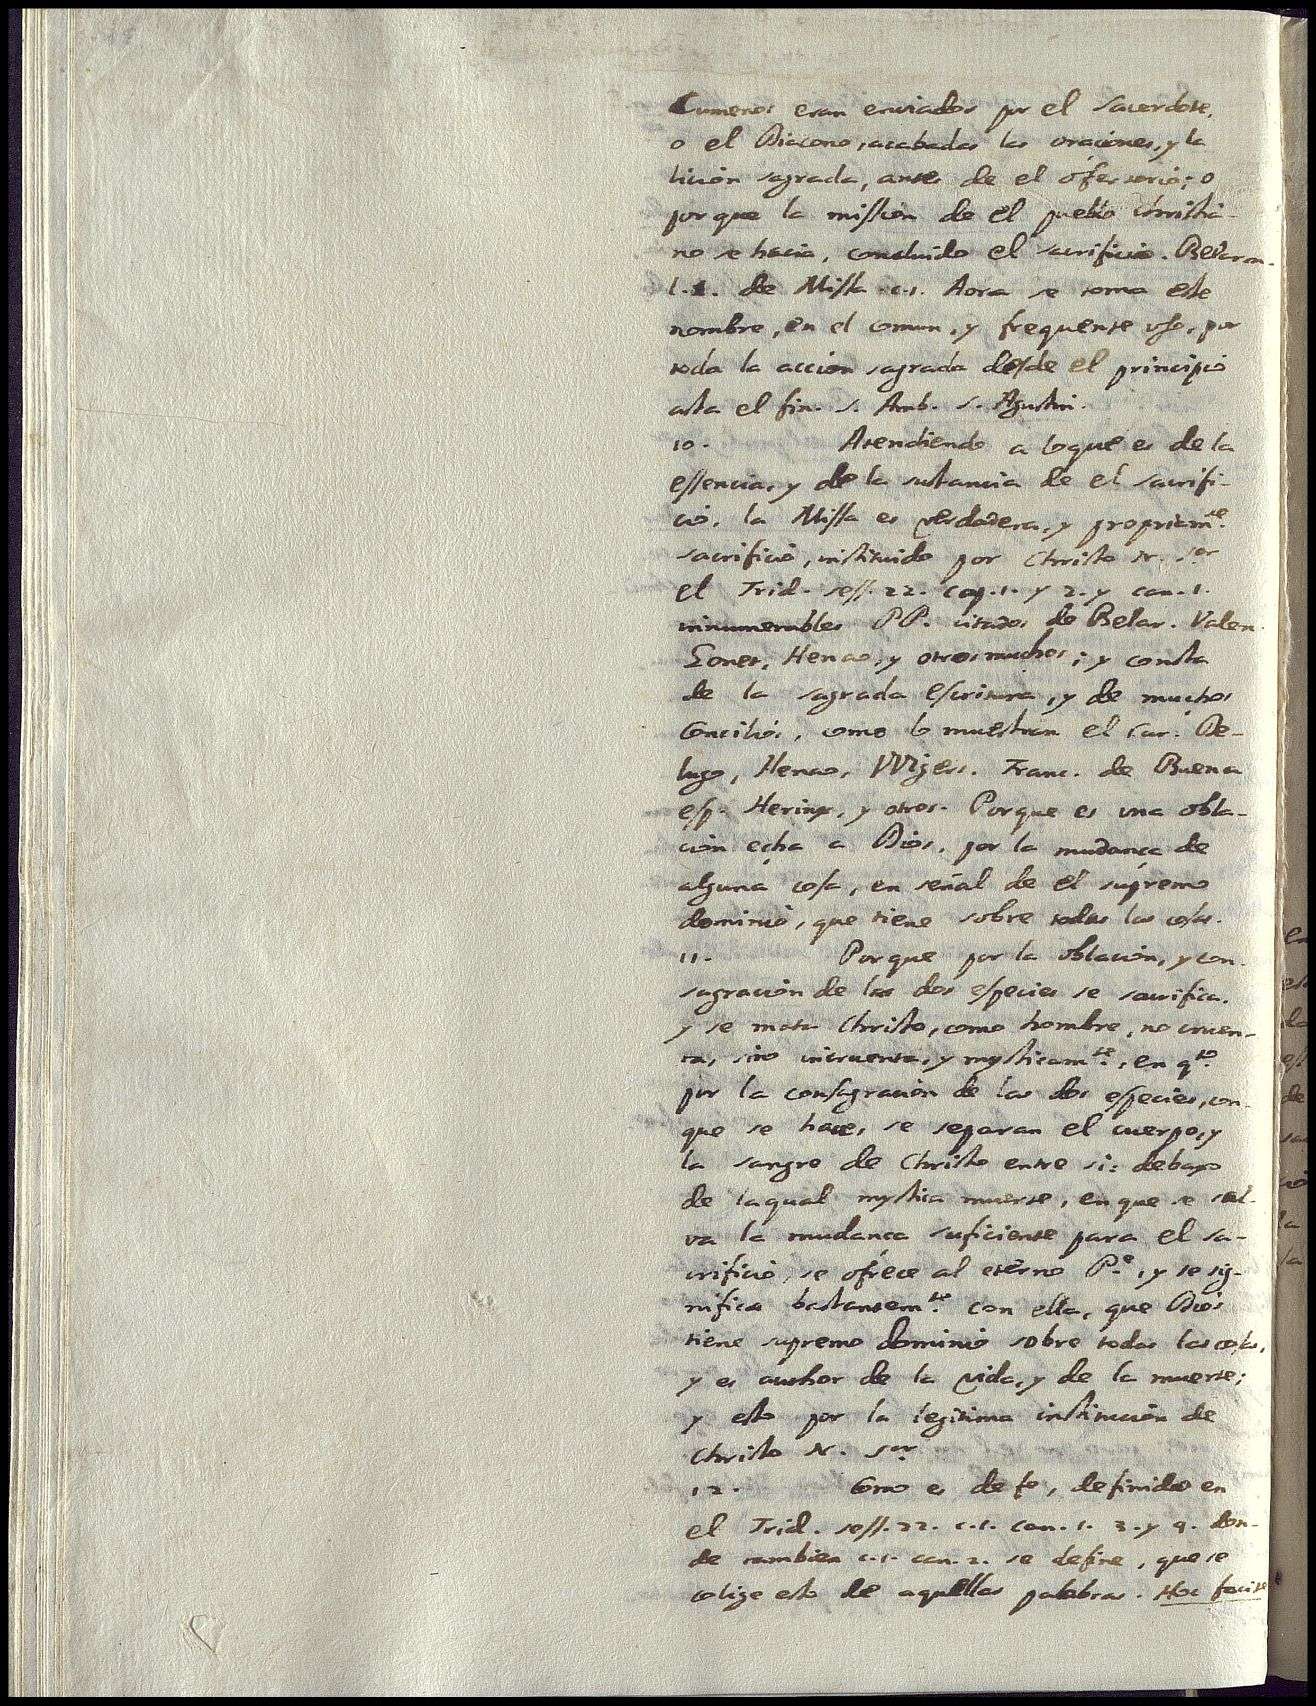 Cumenos eran enviados por el sacerdote,
o el Diacono, acabadas las oraciones, y la
licion sagrada, antes de el ofertorio; o
porque la mission de el pueblo christia-
no se hacia, concluido el sacrificio. Belarm.
l.1. de Missa .c.1. Aora se toma este
nombre, en el comun, y frequente uso, por
toda la accion sagrada desde el principio
asta el fin. S. Amb. S. Agustin.
10. Atendiendo a loque es de la
essencia, y de la sutancia de el sacrifi-
cio, la Missa es verdadera, y propriamte.
sacrificio, instituido por Christo N. Sor
el Trid. sess. 22. cap. 1. y 2. y can. 1.
innumerables PP. citados de Belar. Valen.
Gonet, Henao, y otros muchos; y consta
de la sagrada escritura, y de muchos
Concilios, como lo muestran el Car. De-
lugo, Henao, VVigers. Franc. de Buena
esp. Herinx, y otros. Porque es una obla-
cion echa a Dios, por la mudança de
alguna cosa, en señal de el supremo
dominio, que tiene sobre todas las cosas.
11. Porque por la oblacion, y con-
sagracion de las dos especies se sacrifica,
y se mata Christo, como hombre, no cruen-
ta, sino incruenta, y mysticamte., en qto.
por la consagracion de las dos especies, con-
que se hace, se separan el cuerpo, y
la sangre de Christo entre si: debaxo
de laqual mystica muerte, en que se sal-
va la mudança suficiente para el sa-
crificio, se ofrece al eterno Pe., y se sig-
nifica bastantemte. con ella, que Dios
tiene supremo dominio sobre todas las cosas,
y es author de la vida, y de la muerte;
y esto por la legitima institucion de
Christo N. Sor.
12. Como es de fe, definido en
el Trid. sess. 22. c.1. can. 1. 3. y 9. don-
de tambien c.1. can. 2. se define, que se
colige esto de aquellas palabras. Hoc facite